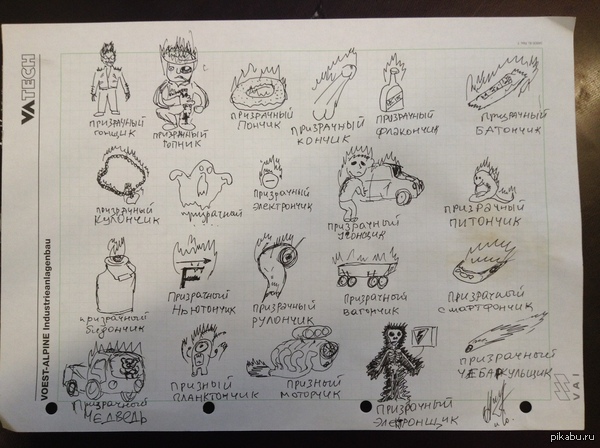 VATECH
VOEST-ALPINE Industrieanlagenbau
VAI
призрачный
гонщик
призрачный
гопник
призрачный
Пончик
призрачный
кончик
призрачный
флакончик
призрачный
батончик
призрачный
кулончик
призрачный
призрачный
электрончик
призрачный
угонщик
призрачный
питончик
призрачный
бидончик
призрачный
Ньютончик
призрачный
рулончик
призрачный
вагончик
призрачный
смартфончик
призрачный
МЕДВЕДЬ
призный
планктончик
призный
моторчик
призрачный
электронщик
призрачный
ЧЕБАРКУЛЬЩИК
pikabu.ru